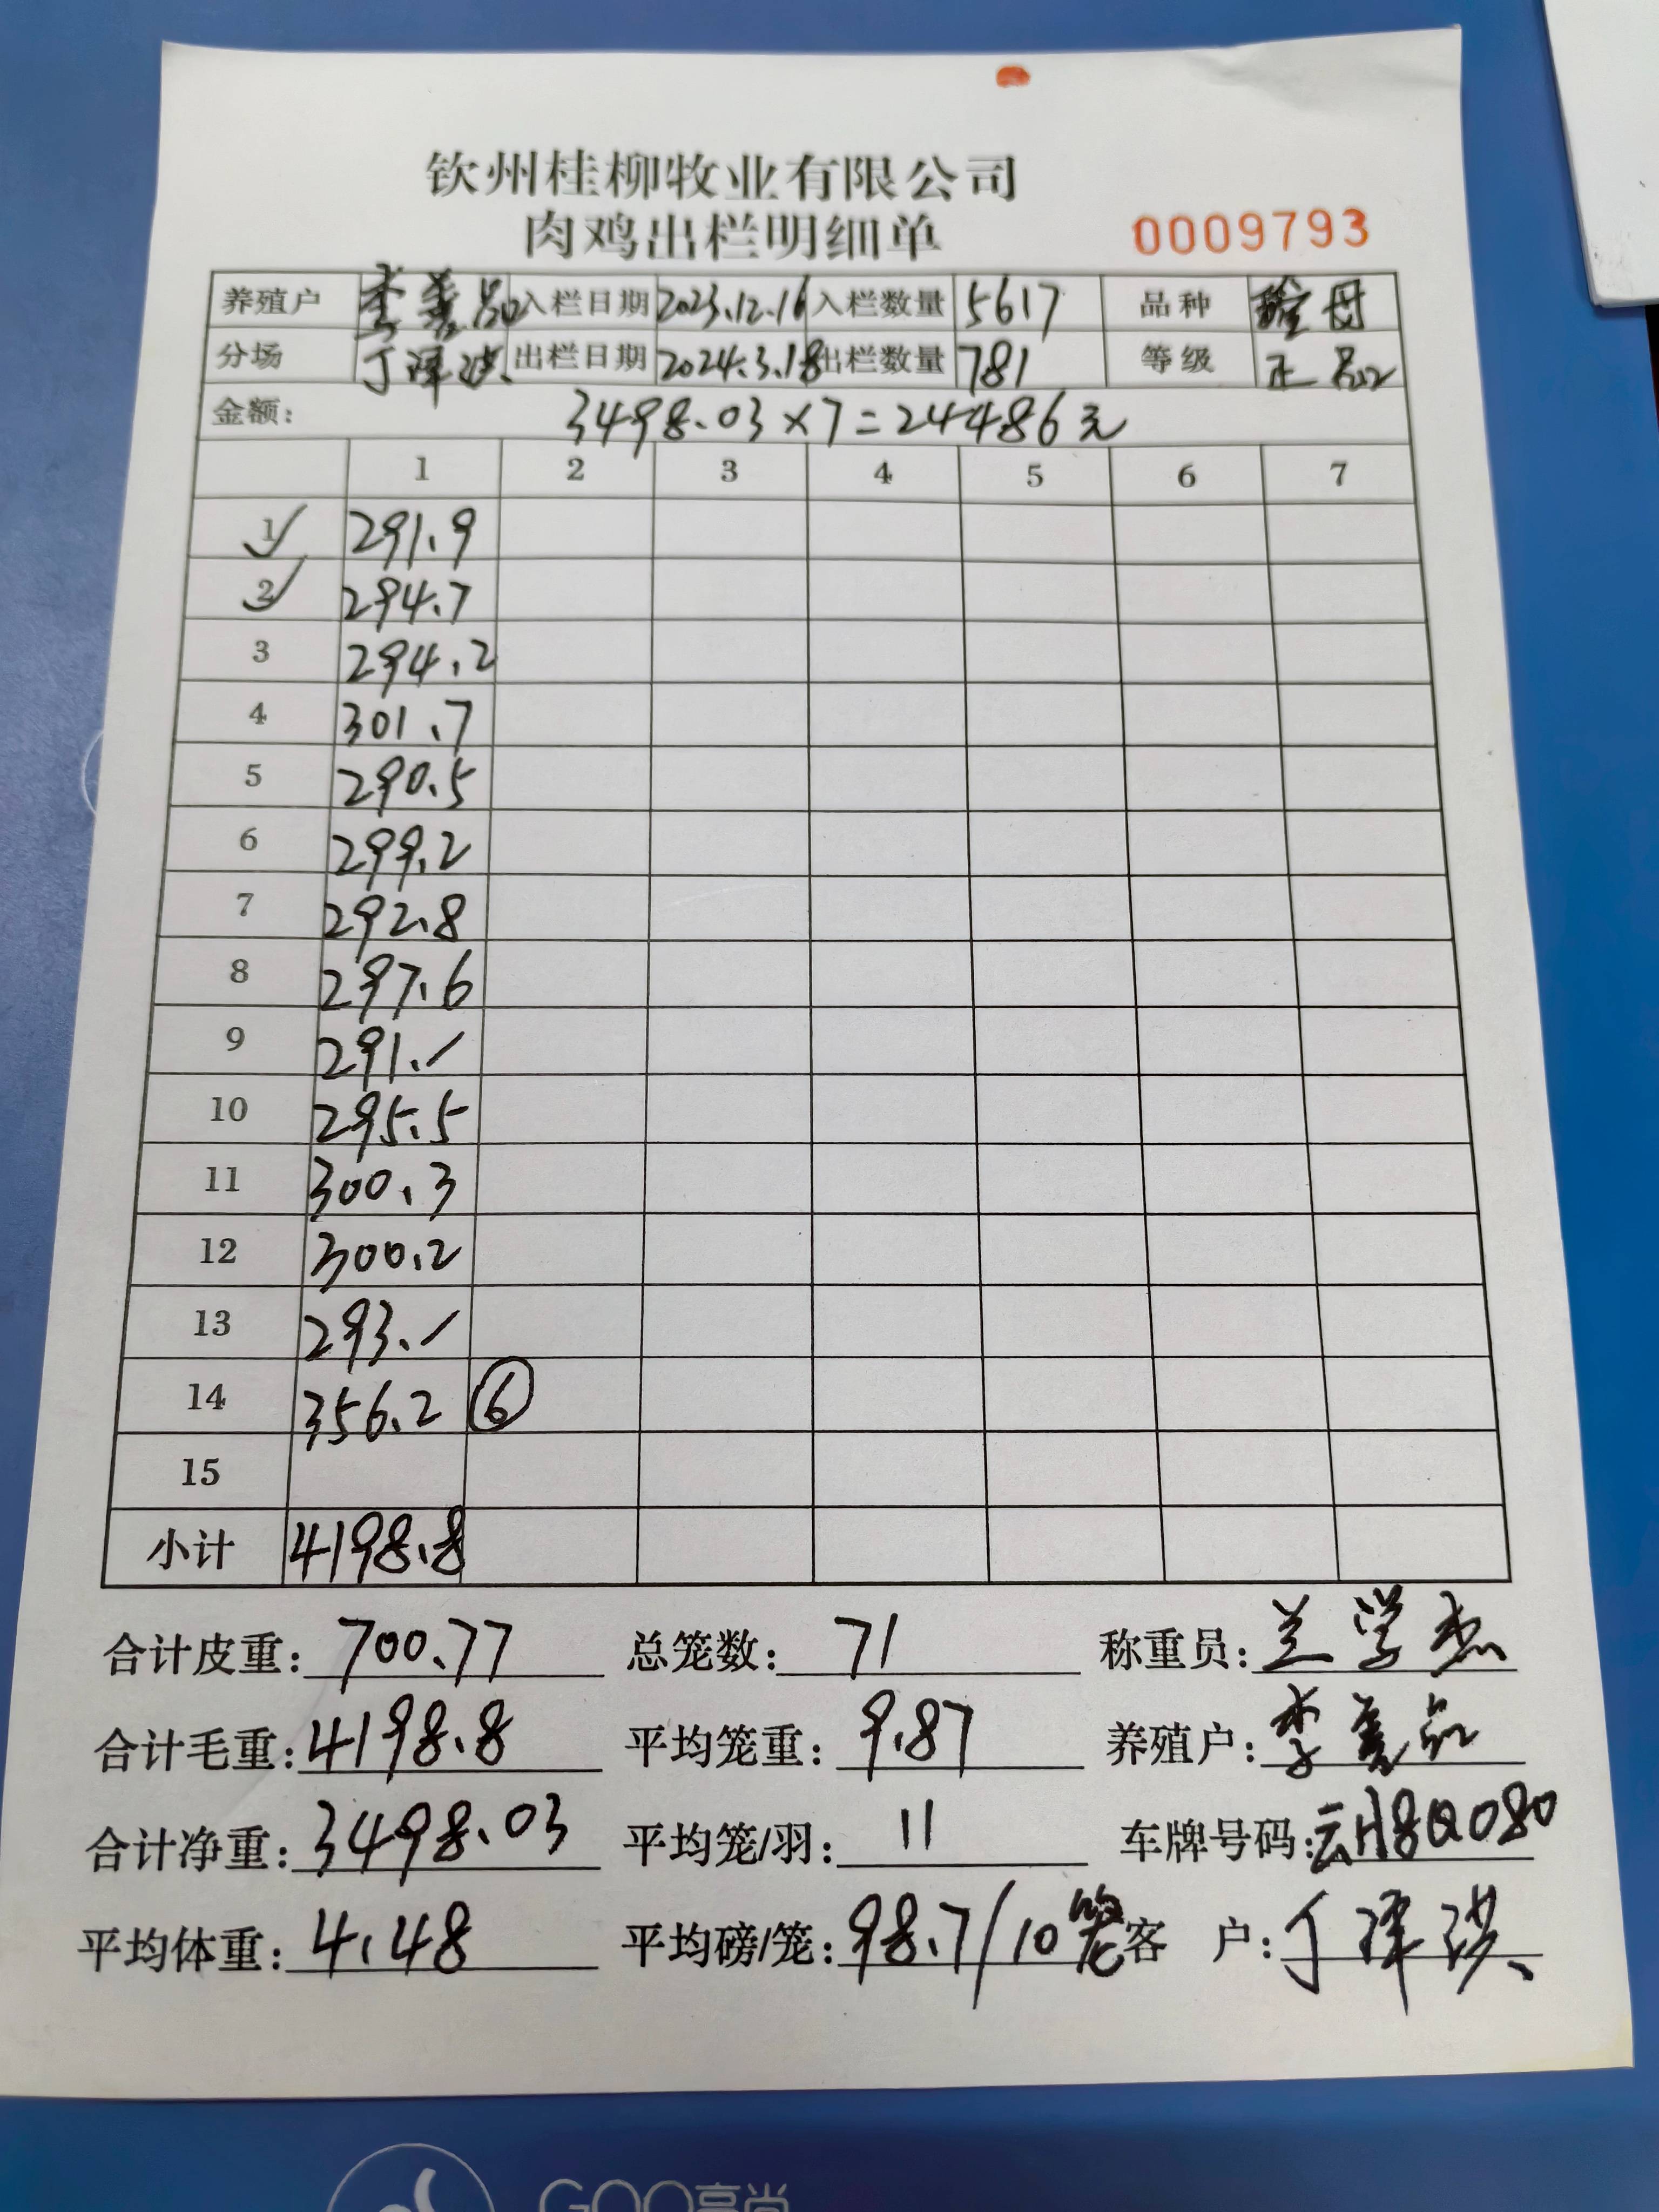 钦州桂柳牧业有限公司
肉鸡出栏明细单 0009793
养殖户 李美品 入栏日期 2023.12.16 入栏数量 5617 品种 母
分场 丁泽洪 出栏日期 2024.3.18 出栏数量 781 等级 正品
金额: 3498.03×7=24486元
1 2 3 4 5 6 7
1 291.9
2 294.7
3 294.2
4 301.7
5 290.5
6 299.2
7 292.8
8 297.6
9 291.1
10 295.5
11 300.3
12 300.2
13 293.1
14 356.2 ⑥
15
小计 4198.8
合计皮重: 700.77 总笼数: 71 称重员: 兰学杰
合计毛重: 4198.8 平均笼重: 9.87 养殖户: 李美品
合计净重: 3498.03 平均笼/羽: 11 车牌号码: 云H8Q080
平均体重: 4.48 平均磅/笼: 98.7/10笼 客户: 丁泽洪
GOO高尚